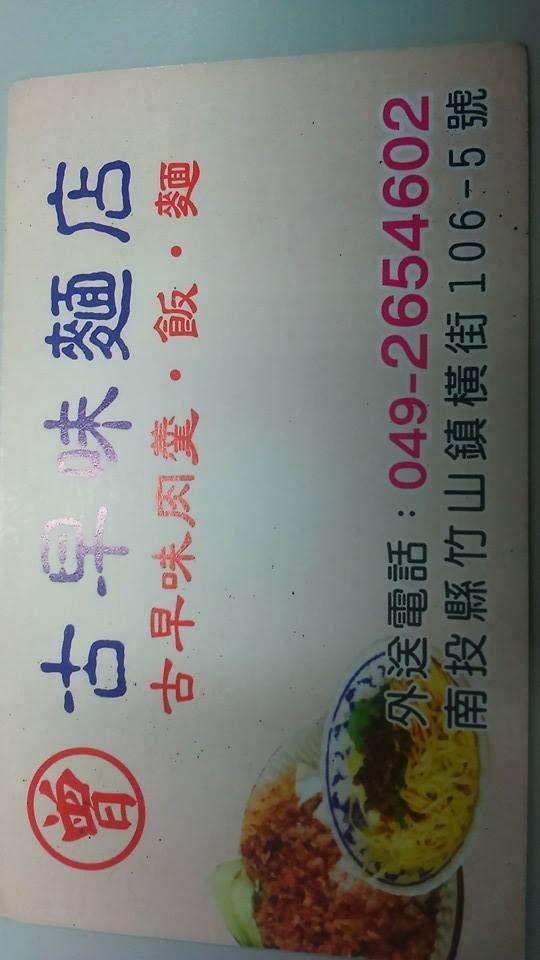 曾 古早味麵店
古早味肉羹・飯・麵
外送電話：049-2654602
南投縣竹山鎮橫街106-5號